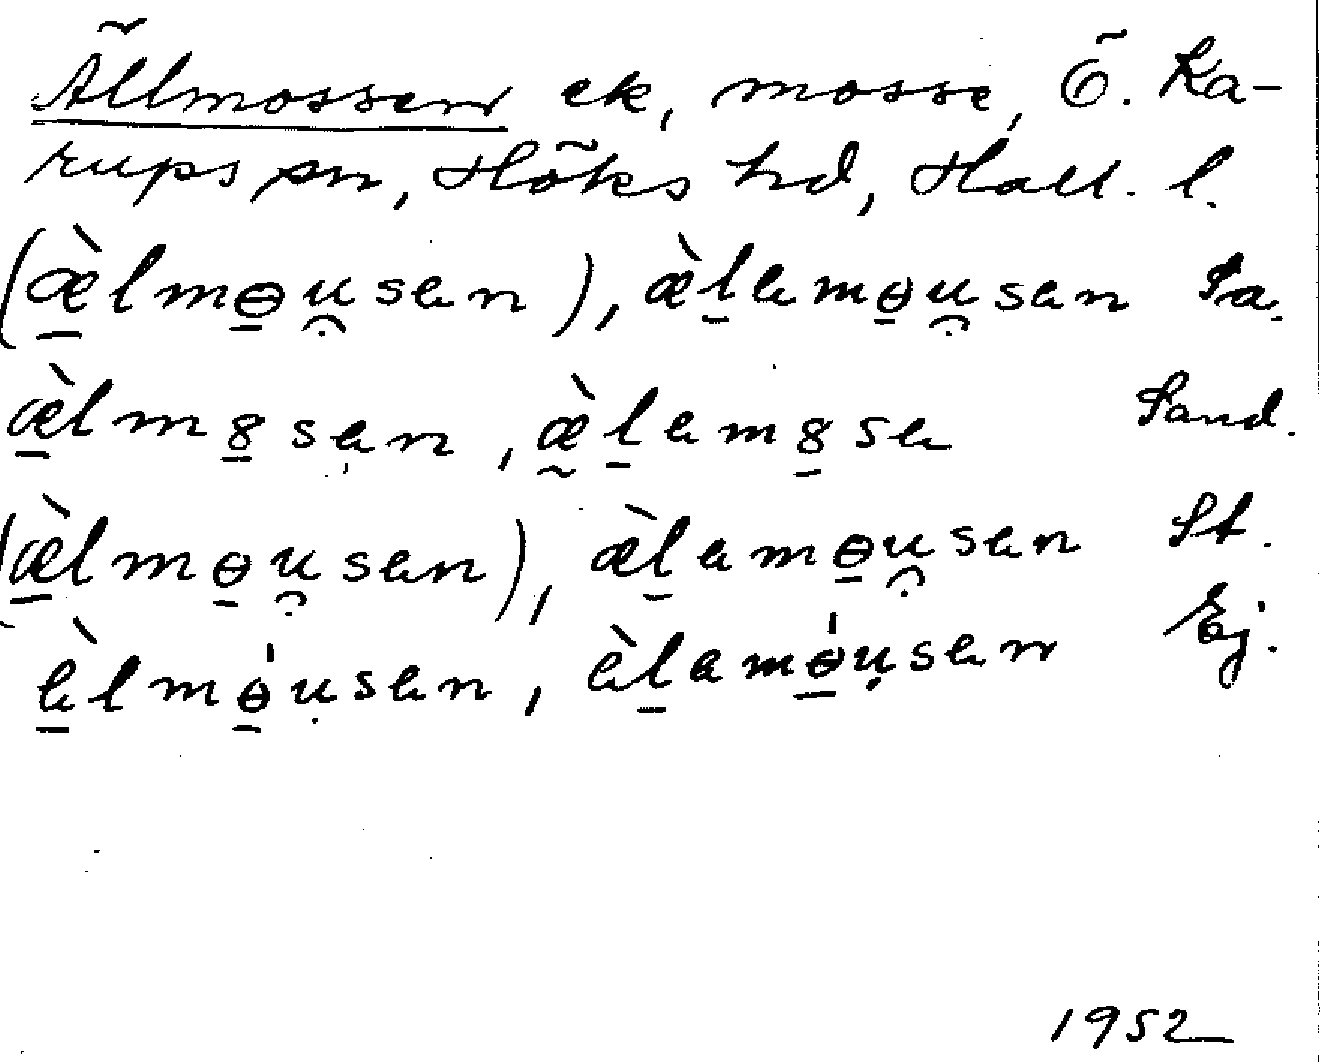 Ällmossen ek, mosse, Ö. Ka-
rups sn, Höks hd, Hall. l.
(æ̀lmɵu̯sen), æ̀lemɵu̯sen Sa.
æ̀lm8sen, æ̀lem8se Sand.
(æ̀lmɵu̯sen), æ̀lemɵu̯sen St.
èlmɵ̍ụsen, èlemɵ̍ụsen Ej.
1952